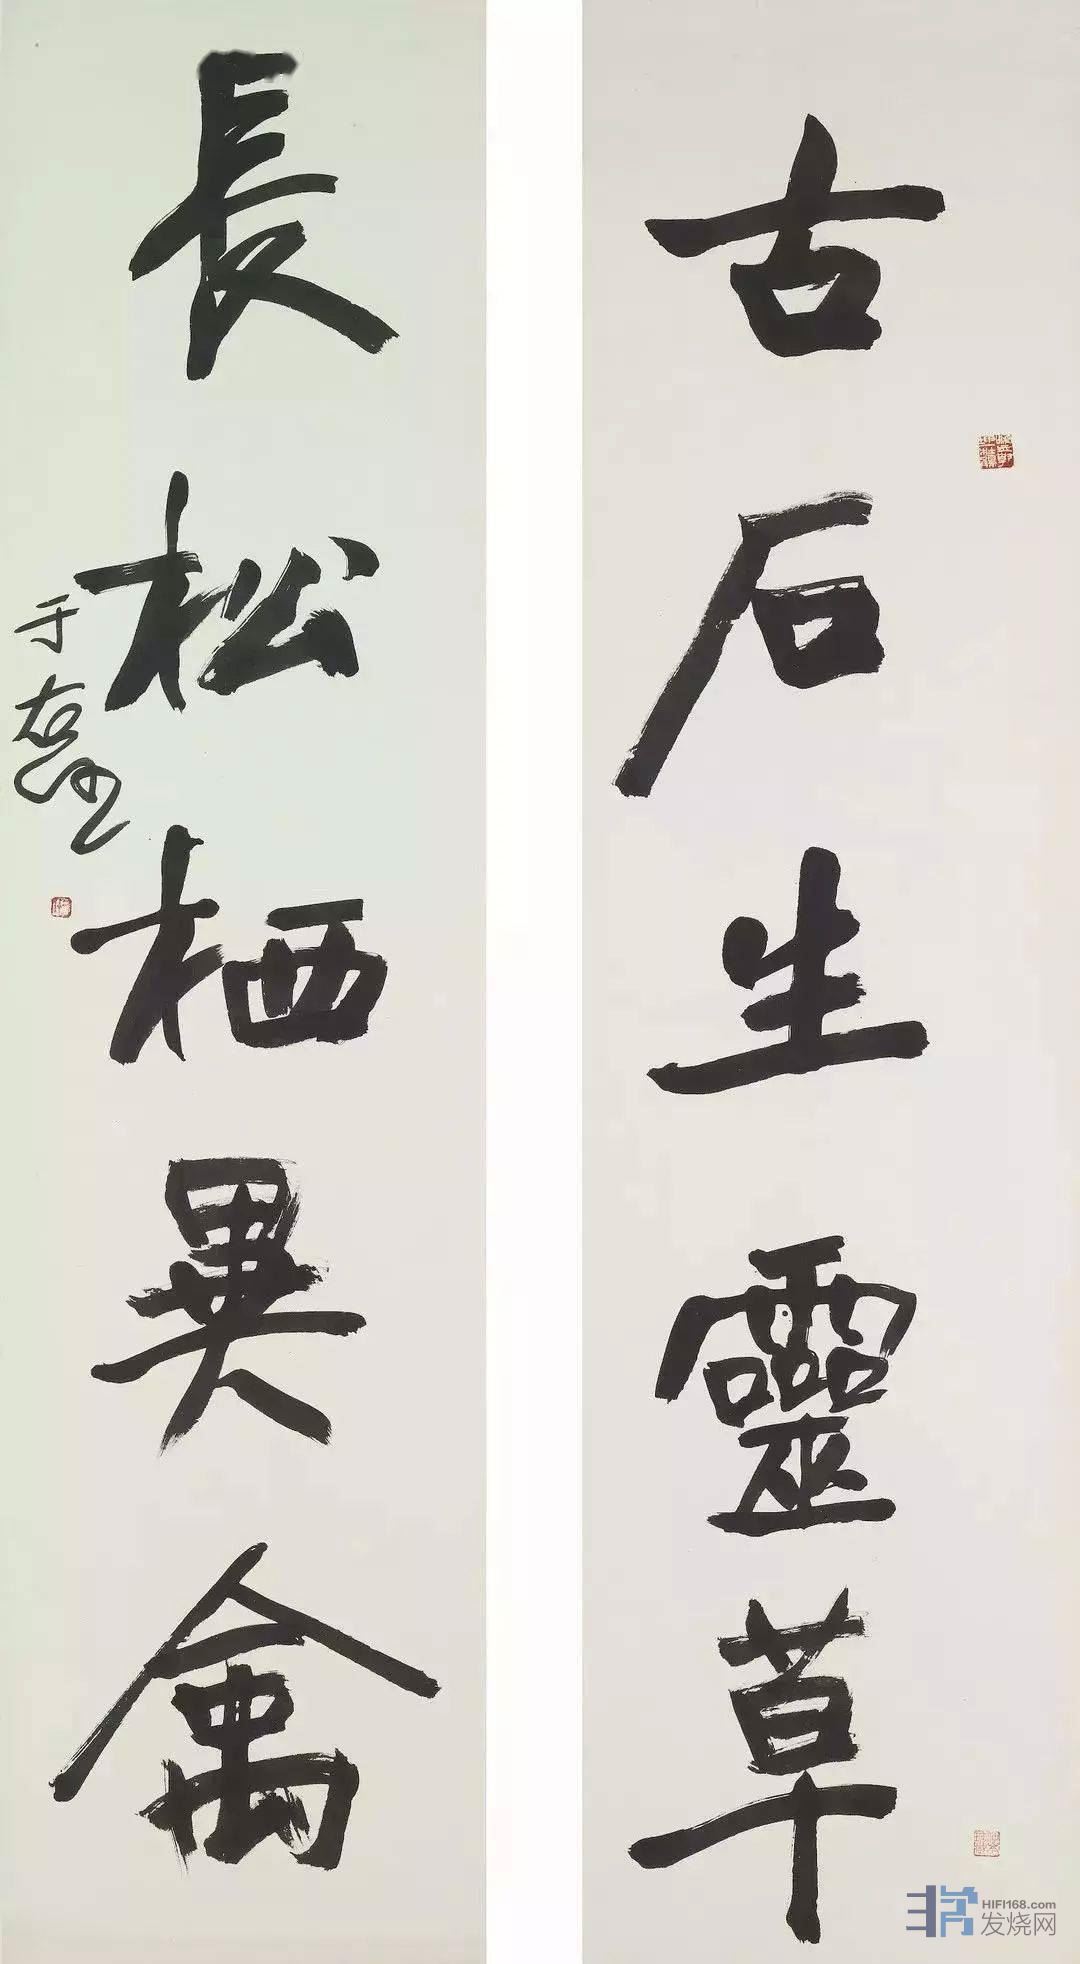 古石生靈草
長松栖異禽
于右任
HIFI168.com
发烧网